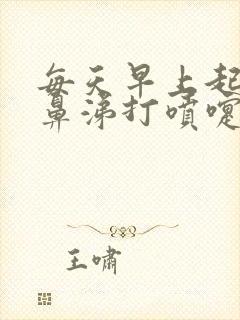 每天早上起
鼻涕打噴嚏
王嘯